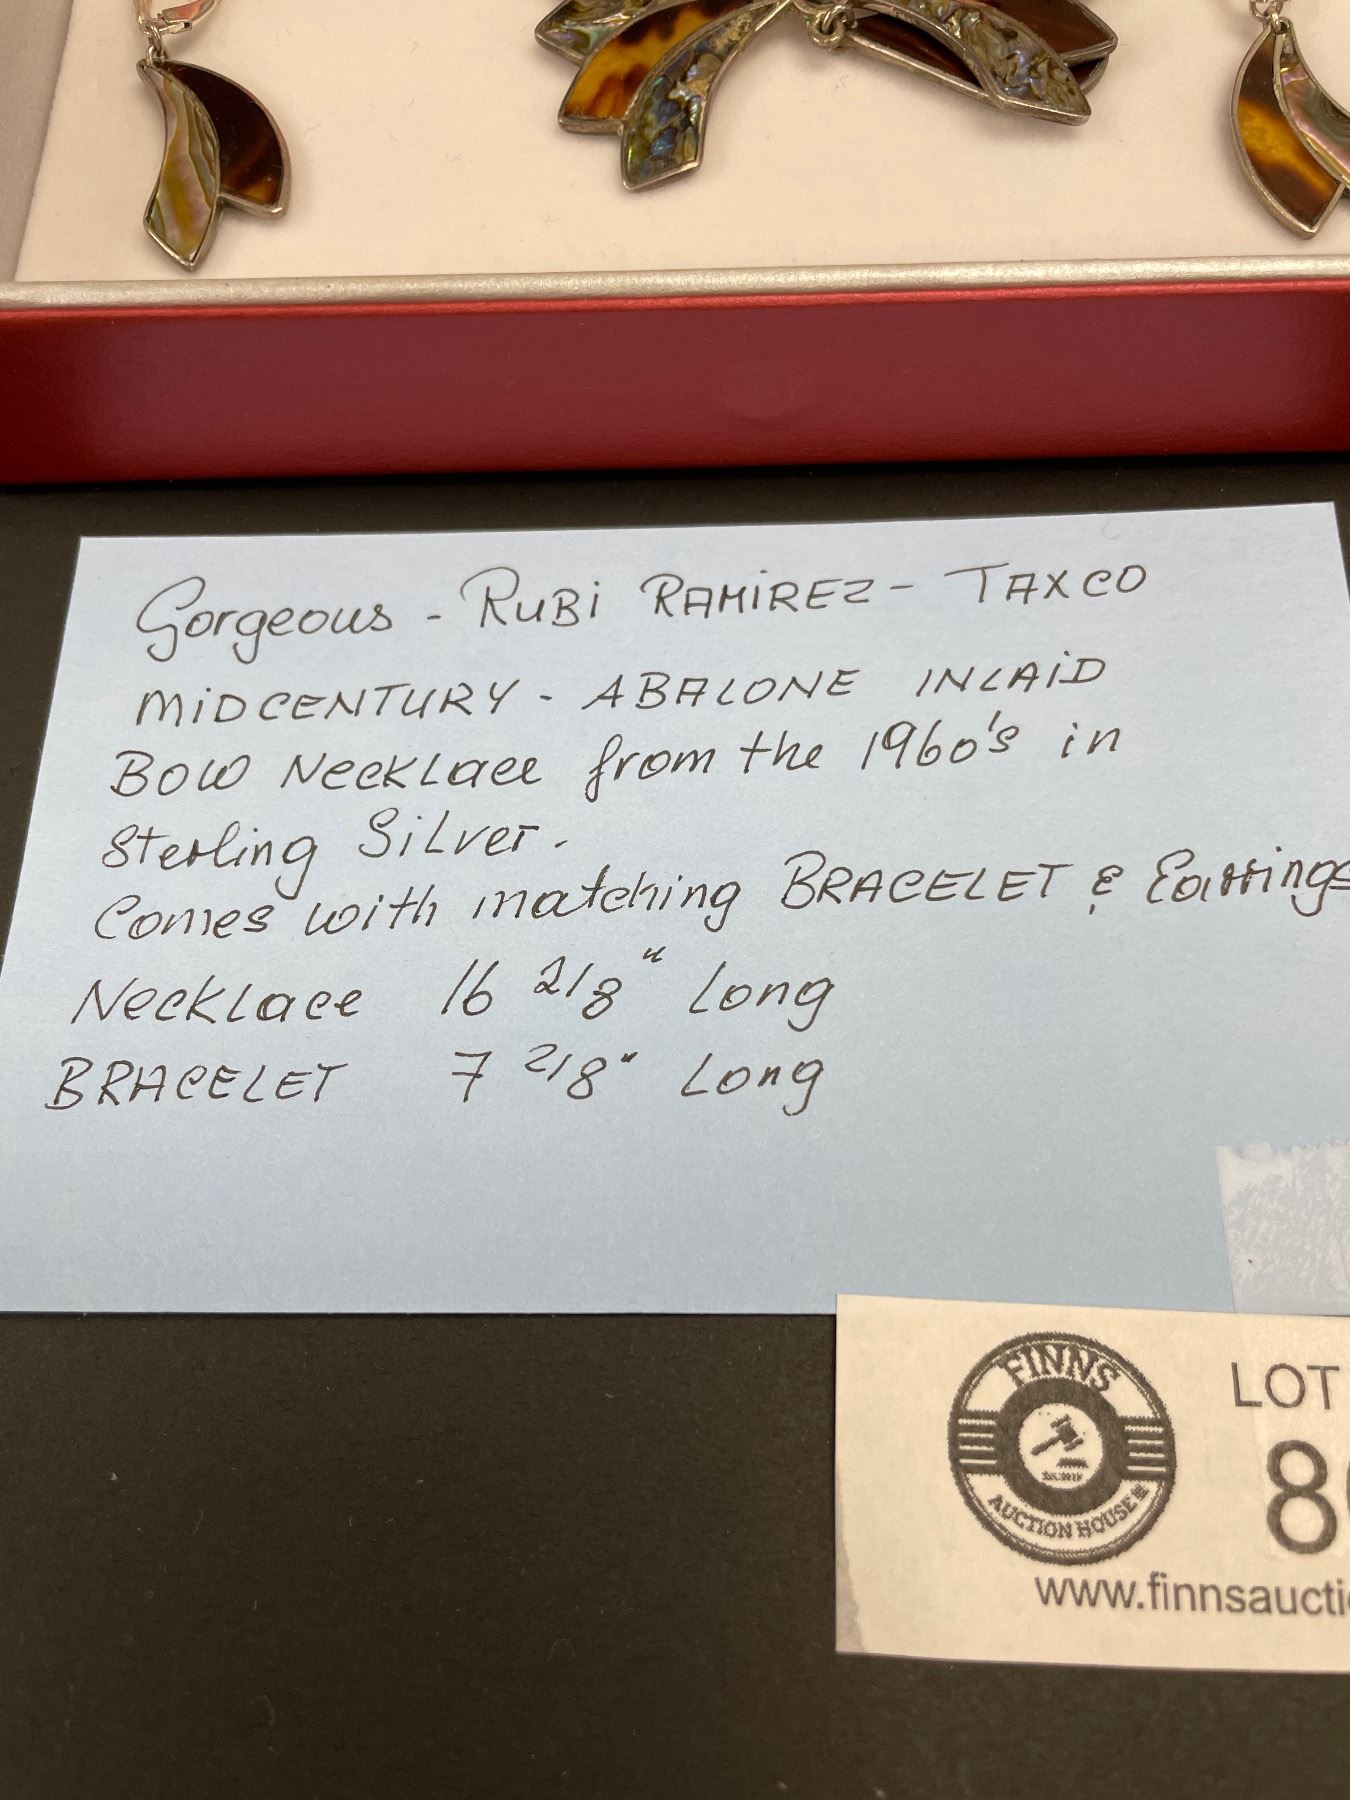 Gorgeous - RUBI RAMIREZ - TAXCO
MIDCENTURY - ABALONE INLAID
BOW NECKLACE from the 1960's in
Sterling SILVER.
Comes with matching BRACELET & Earrings
NECKLACE 16 2/8" Long
BRACELET 7 2/8" Long
FINNS
AUCTION HOUSE
LOT
8
www.finnsaucti